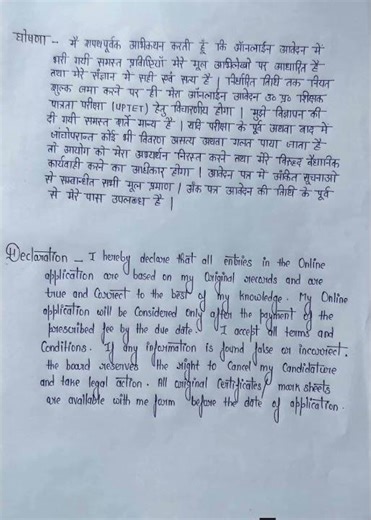 घोषणा - मैं शपथपूर्वक अभिकथन करती हूँ कि ऑनलाईन आवेदन में
भरी गयी समस्त प्रविष्टियाँ मेरे मूल अभिलेखो पर आधारित है
तथा मेरे संज्ञान में सही एवं सत्य है | निर्धारित तिथि तक नियत
शुल्क जमा करने पर ही मेरा ऑनलाईन आवेदन उ० प्र० शिक्षक
पात्रता परीक्षा (UPTET) हेतु विचारणीय होगा | मुझे विज्ञापन की
दी गयी समस्त शर्ते मान्य है | यदि परीक्षा के पूर्व अथवा बाद में
जांचोपरान्त कोई भी विवरण असत्य अथवा गलत पाया जाता है
तो आयोग को मेरा अभ्यर्थन निरस्त करने तथा मेरे विरूद्ध वैधानिक
कार्यवाही करने का अधिकार होगा | आवेदन पत्र में अंकित सूचनाओ
से सम्बन्धित सभी मूल प्रमाण / अंक पत्र आवेदन की तिथि के पूर्व
से मेरे पास उपलब्ध है |
Declaration - I hereby declare that all entries in the Online
application are based on my Original records and are
true and Correct to the best of my knowledge. My Online
application will be Considered only after the payment of the
prescribed fee by the due date. I accept all terms and
Conditions. If any information is found false or incorrect.
the board reserves the right to Cancel my Candidature
and take legal action. All original Certificates/ mark sheets
are available with me form before the date of application.